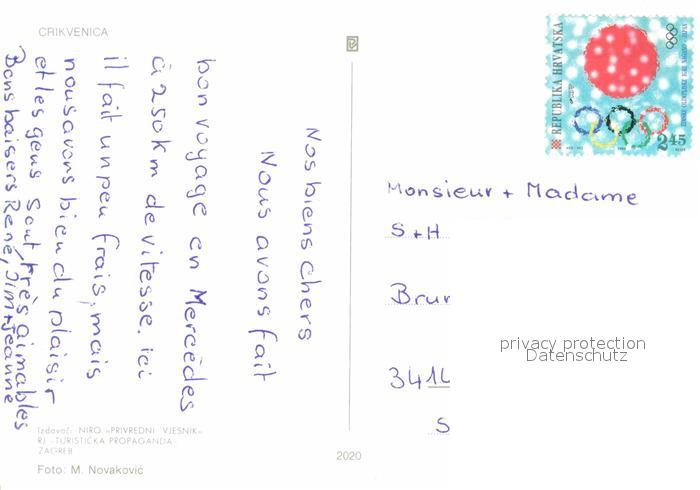 CRIKVENICA
Nos biens chers
Nous avons fait
bon voyage en Mercèdes
à 250 km de vitesse. ici
il fait un peu frais, mais
nous avons bien du plaisir
et les gens sont très aimables
Bons baisers René, Jim + Jeanne
REPUBLIKA HRVATSKA
2.45
Monsieur + Madame
S + H
Brur
3414
S
privacy protection
Datenschutz
Izdavač: NIRO »PRIVREDNI VJESNIK«
RJ -TURISTIČKA PROPAGANDA-
ZAGREB
Foto: M. Novaković
2020